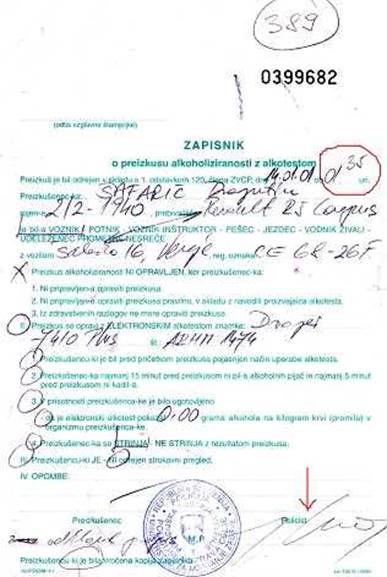 389
0399682
(odtis vzglavne štampiljke)
ZAPISNIK
o preizkusu alkoholiziranosti z alkotestom
Preizkus je bil odrejen v skladu s 1. odstavkom 120. člena ZVCP, dne 14.01.01 01 35 uri.
Preizkušenec-ka: SAFARIČ Dragutin
2/2-1940, Renault 25 Campus
je bil-a VOZNIK POTNIK - VOZNIK INŠTRUKTOR - PEŠEC - JEZDEC - VODNIK ŽIVALI -
UDELEŽENEC PROMETNE NESREČE
z vozilom 16, , reg. oznaka CE 68-26F.
X Preizkus alkoholiziranosti NI OPRAVLJEN, ker preizkušenec-ka:
1. Ni pripravljen-a opraviti preizkusa
2. Ni pripravljen-a opraviti preizkusa pravilno, v skladu z navodili proizvajalca alkotesta.
3. Iz zdravstvenih razlogov ne more opraviti preizkusa
II. Preizkus se opravi z ELEKTRONSKIM alkotestom znamke: Drager
7410 Plus št. ARHH 1474
1. Preizkušenec-ki je bil pred pričetkom preizkusa pojasnjen način uporabe alkotesta.
2. Preizkušenec-ka najmanj 15 minut pred preizkusom ni pil-a alkoholnih pijač in najmanj 5 minut
pred preizkusom ni kadil-a.
3. V prisotnosti preizkušenca-ke je bilo ugotovljeno
- da je elektronski alkotest pokazal 0,00 grama alkohola na kilogram krvi (promila) v
organizmu preizkušenca-ke.
4. Preizkušenec-ka se STRINJA - NE STRINJA z rezultatom preizkusa.
III. Preizkušencu-ki JE - NI odrejen strokovni pregled.
IV. OPOMBE:
Preizkušenec Policist
M.P.
Preizkušencu-ki je bila vročena kopija zapisnika